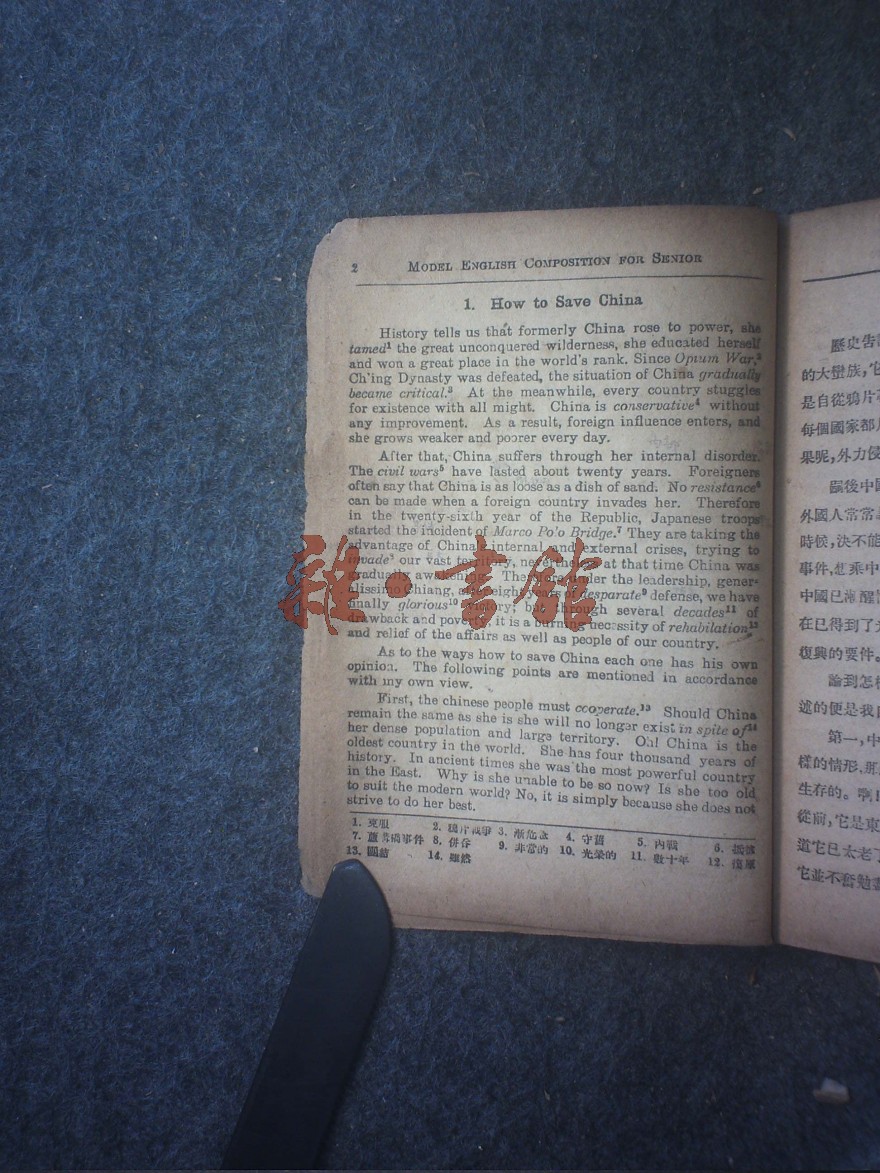 2 MODEL ENGLISH COMPOSITION FOR SENIOR
1. How to Save China
History tells us that formerly China rose to power, she
tamed¹ the great unconquered wilderness, she educated herself
and won a great place in the world's rank. Since Opium War,²
Ch'ing Dynasty was defeated, the situation of China gradually
became critical.³ At the meanwhile, every country stuggles
for existence with all might. China is conservative⁴ without
any improvement. As a result, foreign influence enters, and
she grows weaker and poorer every day.
After that, China suffers through her internal disorder.
The civil wars⁵ have lasted about twenty years. Foreigners
often say that China is as loose as a dish of sand. No resistance⁶
can be made when a foreign country invades her. Therefore
in the twenty-sixth year of the Republic, Japanese troops
started the incident of Marco Polo Bridge.⁷ They are taking the
advantage of China internal and external crises, trying to
invade⁸ our vast territory, nevertheless at that time China was
gradually awakening. Therefore under the leadership, gener-
alissimo Chiang, after eight years of desparate⁹ defense, we have
finally glorious¹⁰ victory; but through several decades¹¹ of
drawback and poverty, it is a burning necessity of rehabilation¹²
and relief of the affairs as well as people of our country.
As to the ways how to save China each one has his own
opinion. The following points are mentioned in accordance
with my own view.
First, the chinese people must cooperate.¹³ Should China
remain the same as she is she will no longer exist in spite of¹⁴
her dense population and large territory. Oh! China is the
oldest country in the world. She has four thousand years of
history. In ancient times she was the most powerful country
in the East. Why is she unable to be so now? Is she too old
to suit the modern world? No, it is simply because she does not
strive to do her best.
1. 克服 2. 鴉片戰爭 3. 漸危急 4. 守舊 5. 內戰 6.
7. 蘆溝橋事件 8. 併吞 9. 非常的 10. 光榮的 11. 數十年 12. 復興
13. 團結 14. 雖然
歷史告
的大蠻族，它
是自從鴉片
每個國家都
果呢，外力侵
嗣後中
外國人常常
時候，決不能
事件，想乘中
中國已漸醒
在已得到了
復興的要件。
論到怎
述的便是我
第一，中
樣的情形，那
生存的。啊！
從前，它是東
道它已太老了
它並不奮勉
雜·書館